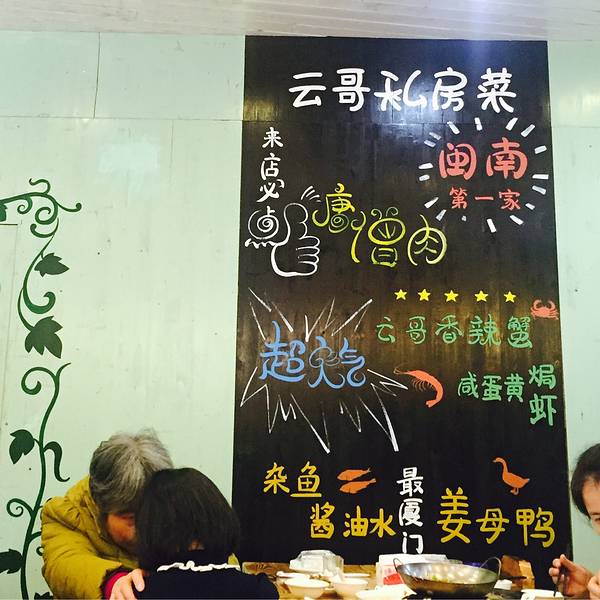 云哥私房菜
闽南
第一家
来店必点
唐僧肉
超人气
云哥香辣蟹
咸蛋黄焗虾
杂鱼
酱油水
最厦门
姜母鸭